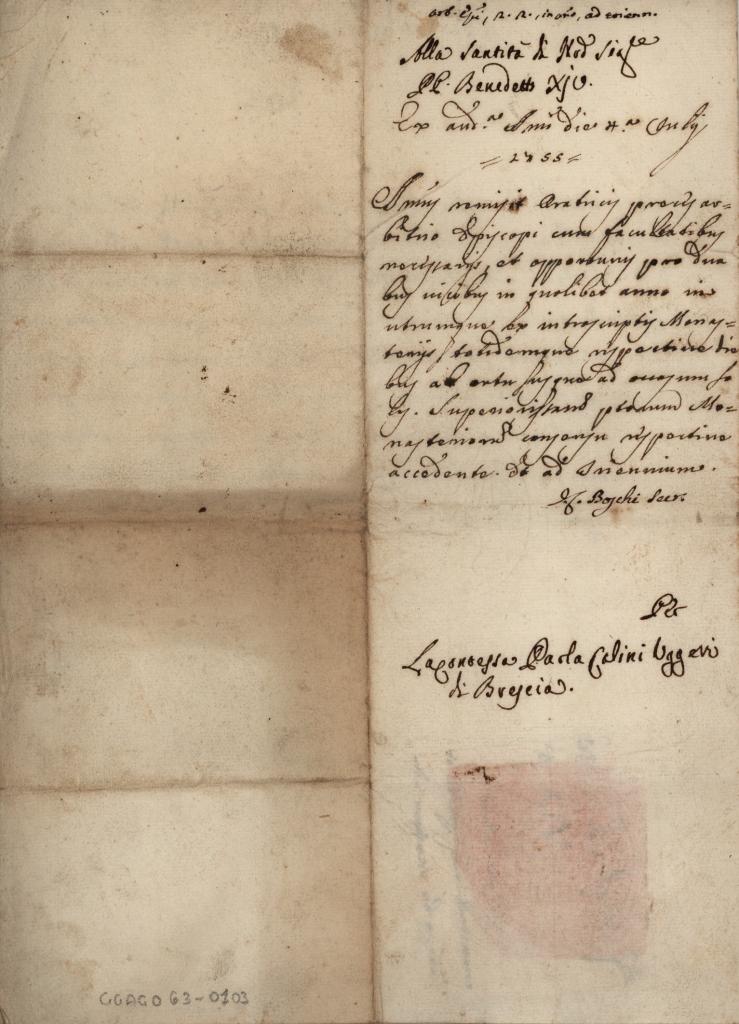 arb. Epi, n. n. in ano, ad trienn.
Alla Santità di Nro Sigre
PP. Benedetto XIV.
Ex aud.a Smi die 4.a July
1755
Smus remisit Oratricis preces ar=
bitrio Episcopi cum facultatibus
necessariis, et opportunis pro dua
bus vicibus in quolibet anno in
utrumque ex introscriptis Monas=
teriis totidemque respective die
bus ab ortu usque ad occasum so
lis. Superiorissarum ptorum Mo=
nasteriorum consensu respective
accedente. Et ad Triennium.
Boschi Secr.
Per
La Contessa Paola Calini Uggeri
di Brescia.
GGAGO 63-0103